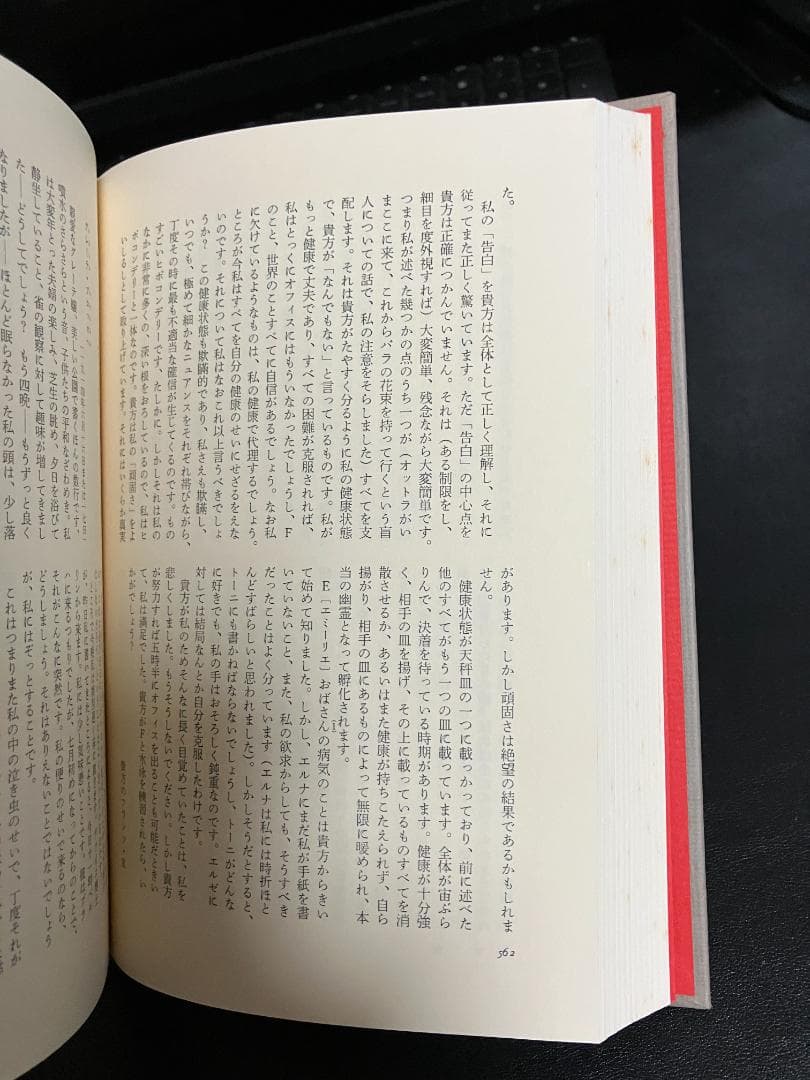 た。
私の「告白」を貴方は全体として正しく理解し、それに
従ってまた正しく驚いています。ただ「告白」の中心点を
貴方は正確につかんでいません。それは（ある制限をし、
細目を度外視すれば）大変簡単、残念ながら大変簡単です。
つまり私が述べた幾つかの点のうち一つが（オットラがい
まここに来て、これからバラの花束を持って行くという盲
人についての話で、私の注意をそらしました）すべてを支
配します。それは貴方がたやすく分るように私の健康状態
で、貴方が「なんでもない」と言っているものです。私が
もっと健康で丈夫であり、すべての困難が克服されれば、
私はとっくにオフィスにはもういなかったでしょうし、F
のこと、世界のことすべてに自信があるでしょう。なお私
に欠けているようなものは、私の健康で代理するでしょう。
ところが今私はすべてを自分の健康のせいにせざるをえな
いのです。それについて私はなおこれ以上言うべきでしょ
うか？　この健康状態も欺瞞的であり、私さえも欺瞞し、
いつでも、極めて細かなニュアンスをそれぞれ帯びながら、
丁度その時に最も不適当な確信が生じてくるのです。もの
すごいヒポコンデリーです、たしかに。しかしそれは私の
なかに非常に多くの、深い根をおろしているので、私はヒ
ポコンデリーと一体なのです。貴方は私の「頑固さ」をよ
いしるしとして取り上げています。それにはいくらか真実
があります。しかし頑固さは絶望の結果であるかもしれま
せん。
健康状態が天秤皿の一つに載っかっており、前に述べた
他のすべてがもう一つの皿に載っています。全体が宙ぶら
りんで、決着を待っている時期があります。健康が十分強
く、相手の皿を揚げ、その上に載っているものすべてを消
散させるか、あるいはまた健康が持ちこたえられず、自ら
揚がり、相手の皿にあるものによって無限に暖められ、本
当の幽霊となって孵化されます。
E［エミーリエ］おばさんの病気のことは貴方からきい
て始めて知りました。しかし、エルナにまだ私が手紙を書
いていないこと、また、私の欲求からしても、そうすべき
だったことはよく分っています（エルナは私には時折ほと
んどすばらしいと思われました）。しかしそうだとすると、
トーニにも書かねばならないでしょうし、トーニがどんな
に好きでも、私の手はおそろしく鈍重なのです。エルゼに
対しては結局なんとか自分を克服したわけです。
貴方が私のためそんなに長く目覚めていたことは、私を
悲しくしました。もうそうしないでください。しかし貴方
が努力すれば五時半にオフィスを出ることも可能だときい
て、私は満足でした。貴方がFと水泳を練習されたら、い
かがでしょう？
貴方のフランツ・K
562
親愛なグレーテ嬢、美しい公園で書くほんの数行です、
噴水のさらさらという音、子供たちの平和なざわめき。私
は大変年とった夫婦の楽しみ、芝生の眺め、夕日を浴びて
静坐していること、雀の観察に対して趣味が増してきまし
た――どうしてでしょう？　もう四晩――もうずっと良く
なりましたが――ほとんど眠らなかった私の頭は、少し落
それがこんなに突然です。私の便りのせいで来るのなら、
どうしましょう。それはありえないことではないでしょう
が、私にはぞっとすることです。
これはつまりまた私の中の泣き虫のせいで、丁度それが